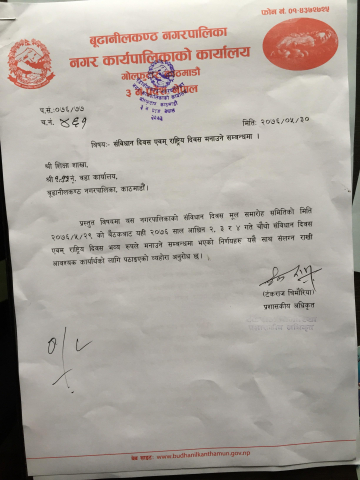 फोन नं. ०१-४३७२७२५
बूढानीलकण्ठ नगरपालिका
नगर कार्यपालिकाको कार्यालय
गोल्फुटार, काठमाडौं
३ नं. प्रदेश, नेपाल
प.सं. ०७६/७७
च.नं. ४६१
मितिः २०७६/०५/३०
विषयः- संविधान दिवस एवम् राष्ट्रिय दिवस मनाउने सम्बन्धमा ।
श्री शिक्षा शाखा,
श्री १-१३ नं. वडा कार्यालय,
बूढानीलकण्ठ नगरपालिका, काठमाडौं।
प्रस्तुत विषयमा यस नगरपालिकाको संविधान दिवस मूल समारोह समितिको मिति
२०७६/५/२९ को बैठकबाट यही २०७६ साल आश्विन १, २, ३ र ४ गते चौथो संविधान दिवस
एवम् राष्ट्रिय दिवस भव्य रूपले मनाउने सम्बन्धमा भएको निर्णयहरू यसै साथ संलग्न राखी
आवश्यक कार्यार्थको लागि पठाइएको व्यहोरा अनुरोध छ।
(टंकराज चिमौरिया)
प्रशासकीय अधिकृत
वेब साइटः www.budhanilkanthamun.gov.np